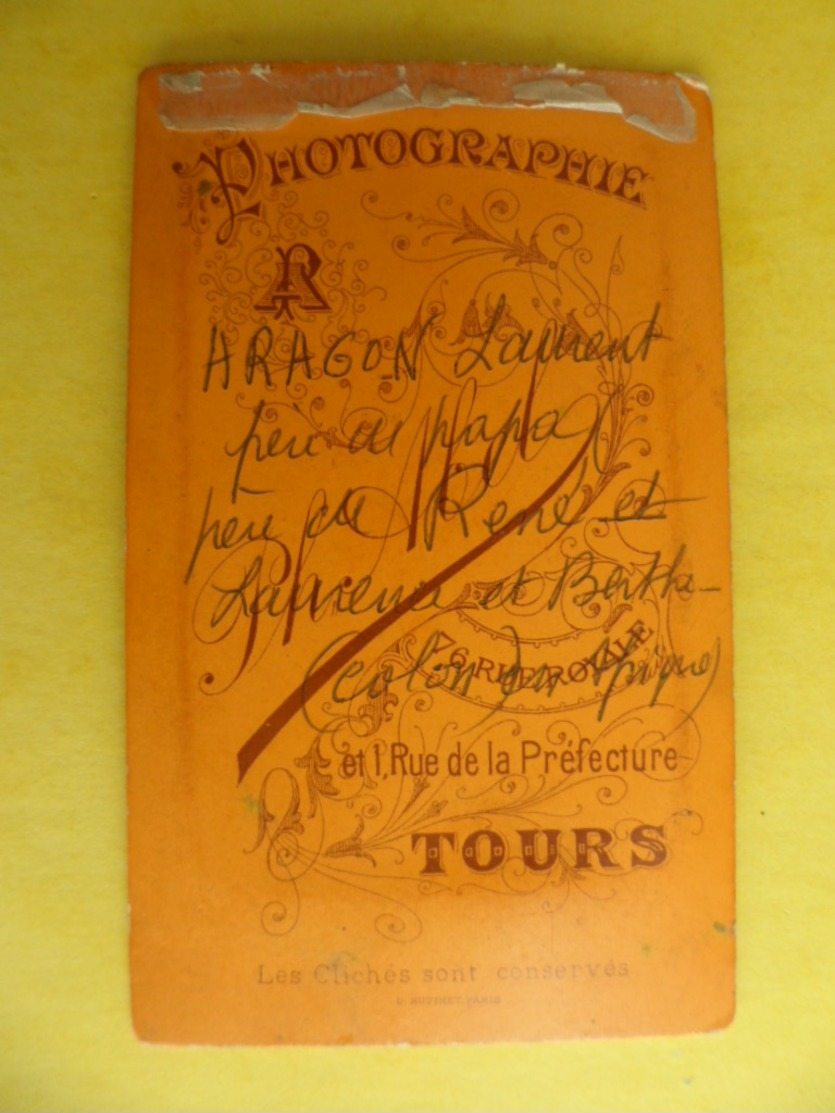 PHOTOGRAPHIE
R
ARAGON Laurent
père de papa
père de René et
Laurence et Berthe
(colon) en
76, RUE ROYALE
et 1, Rue de la Préfecture
TOURS
Les Clichés sont conservés
PARIS